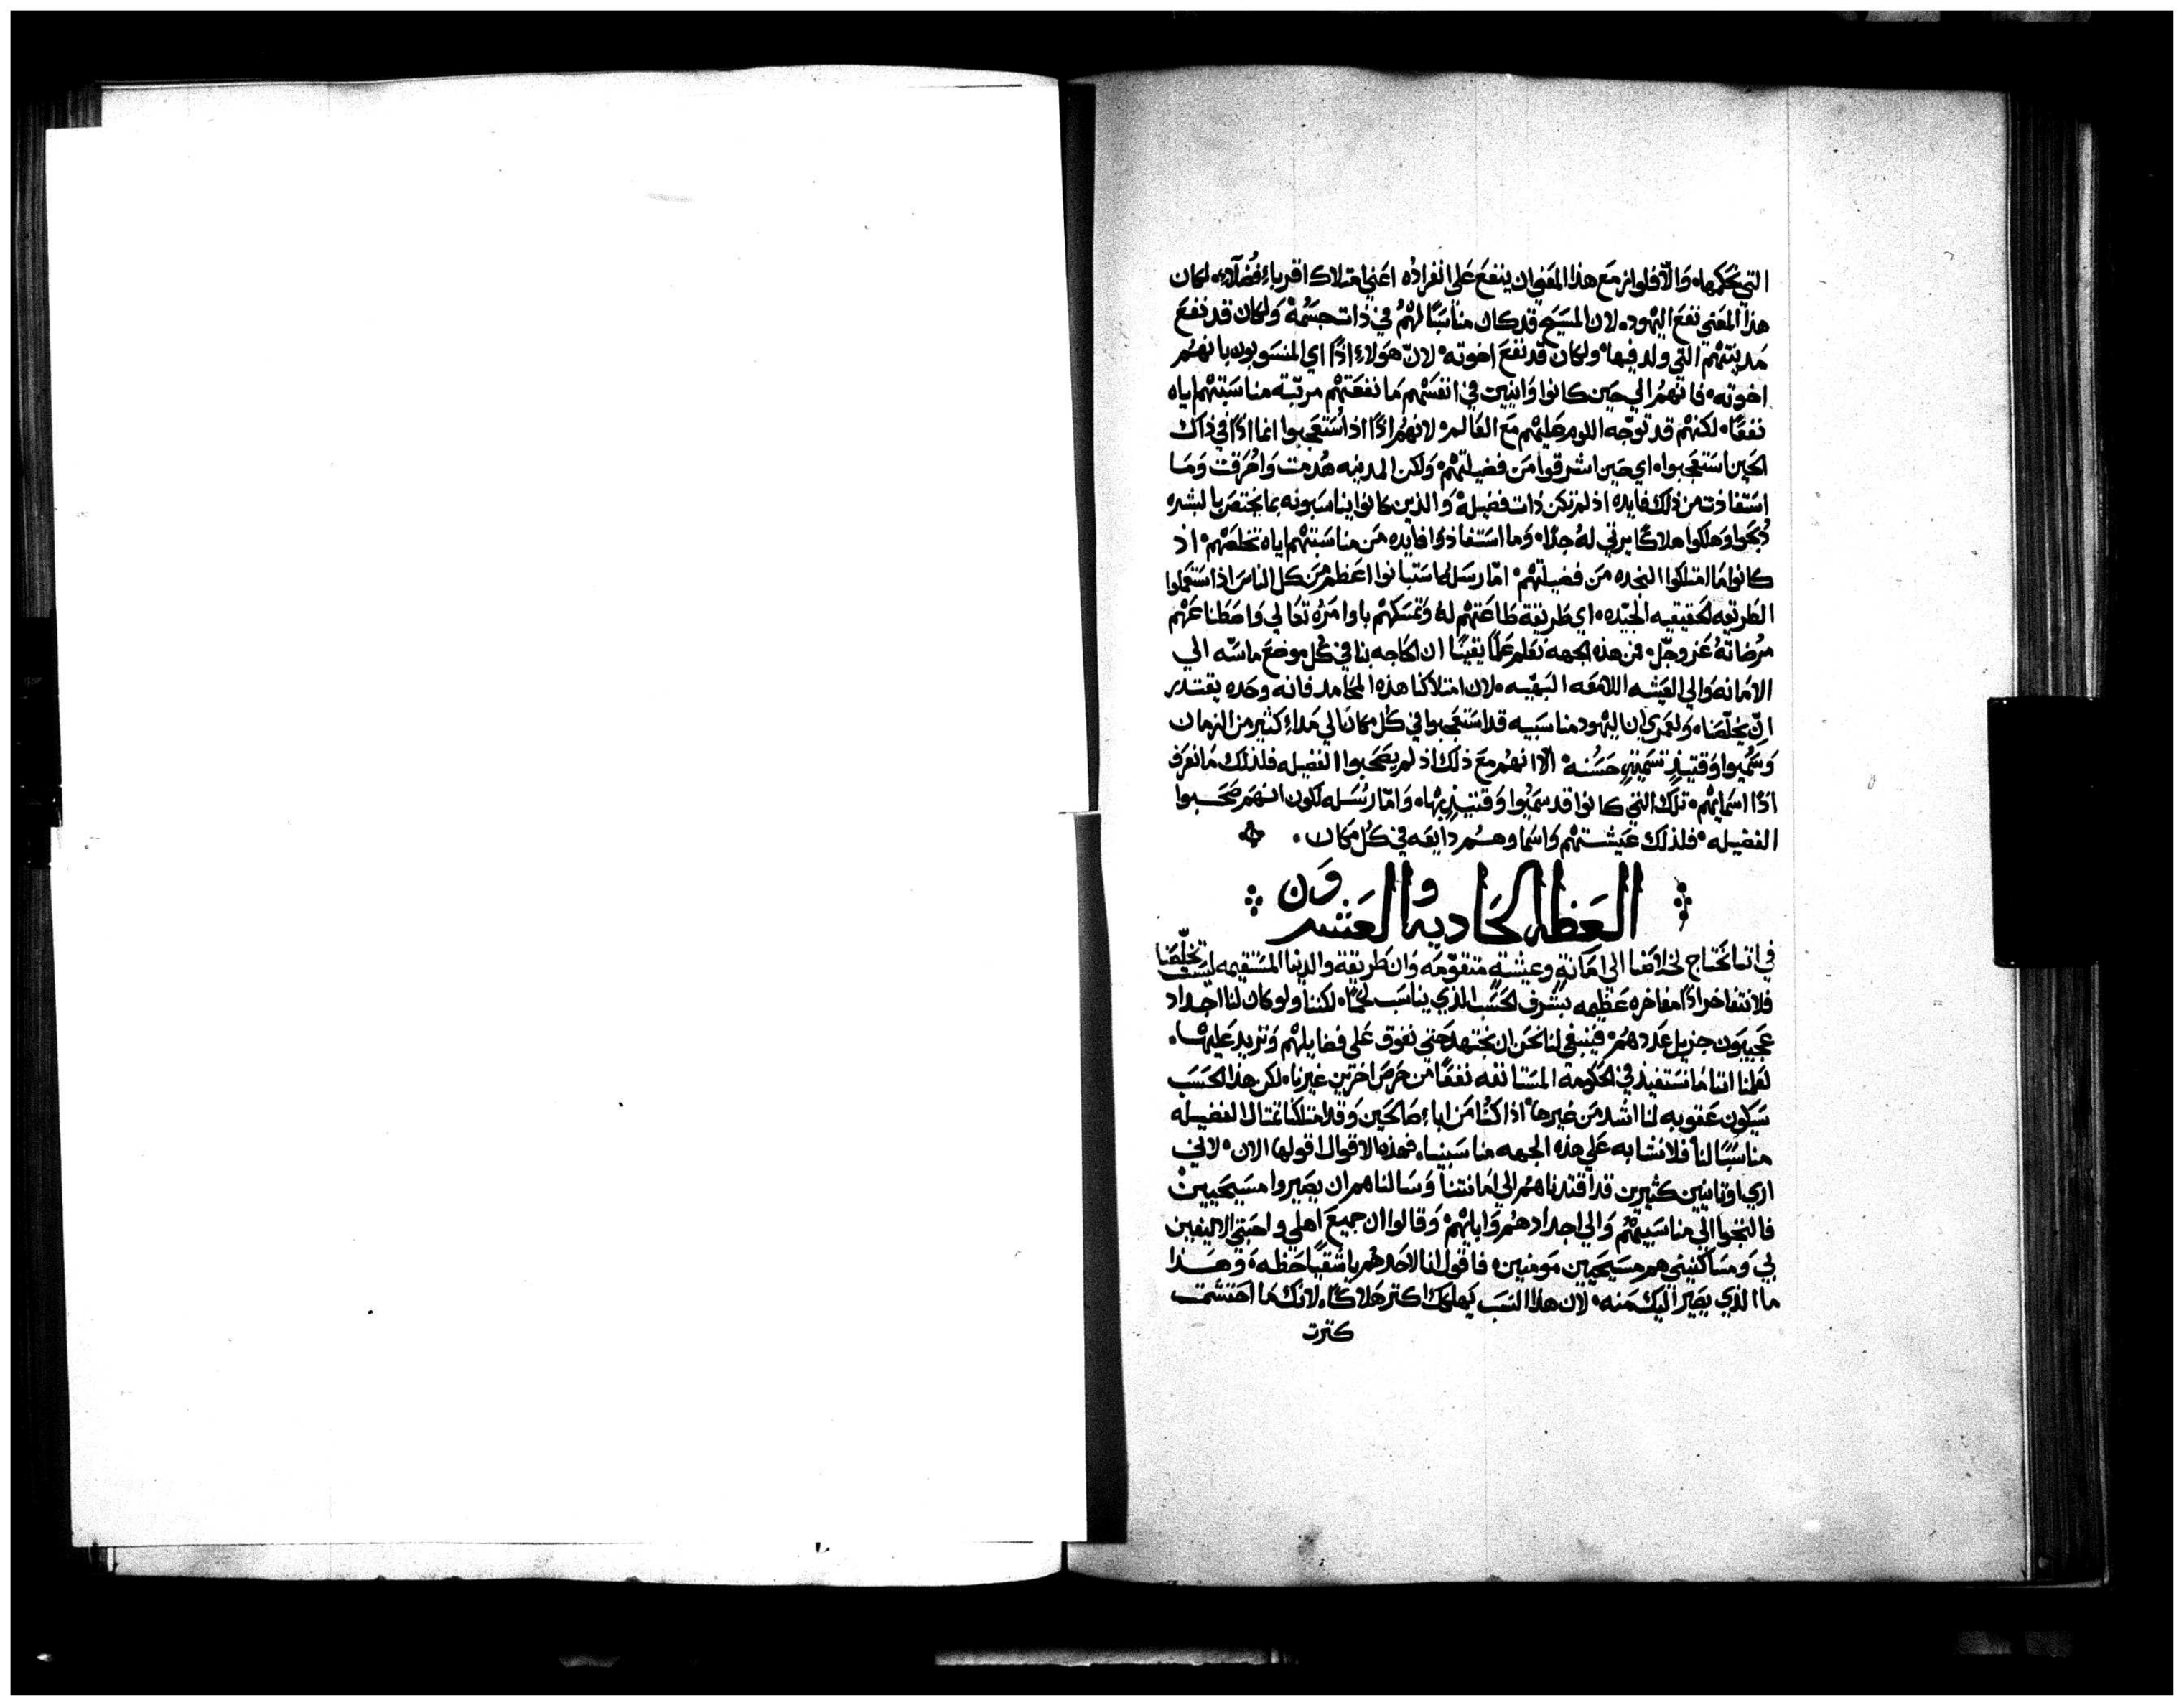 التي نحكمها، والّا فلو لزم مع هذا المعني ان ينفع علي انفراده اعني امتلاك اقرباءٍ فُضلآء، لكان
هذا المعني نفع اليهود، لان المسيح قد كان مناسبًا لهُم في ذات جسمُهْ ولكان قد نفع
مدينتهم التي ولد فيها، ولكان قد نفع اخوته، لانّ هولاءِ اذًا اي المنسوبون بانهُم
اخوته، فانهمُ الي حين كانوا وانيين في انفسهم ما نفعتهم مرتّبة مناسبتهم اياه
نفعًا، لكنهم قد توجّه اللوم عليهم مع العالم، لانهُم اذًا اذ استعجبوا انما اذًا في ذاك
الحين استعجبوا، اي حين اشرقوا من فضيلتهم، ولكن المدينه هُدمت واحُرقت وما
استفادت من ذلك فايده اذ لم تكن ذات فضيله، والذين كانوا يناسبونه بما يختص بالبشره
ذُبحوا وهلكوا هلاكًا يرثي لهُ جدًا، وما استفادوا فايده من مناسبتهم اياه تخلصهم، اذ
كانوا ما امتلكوا النجده من فضيلتهم، امّا رسله فاستبانوا اعظم من كل الناس اذ استعملوا
الطريقه الحقيقيه الجيّده، اي طريقة طاعتهم لهُ وتمسكهم باوامرهُ تعالي واحظنا عهم
مرُضاتهُ عز وجلّ، فمن هذه الجهه نعلم علمًا يقينًا ان الحاجه بنا في كل موضع ماسّه الي
الامانه والي العيشه اللامعه البهّيه، لان امتلاكنا هذه المحامد فانه وحده يقتدر
انّ يخلّصنا، ولعمري ان اليهود مناسبيه قد استعجبوا في كل مكان الي مداءِ كثير من الزمان
وسُميوا وقتيذٍ تسميةٍ حسُنه، الّا انهُم مع ذلك اذ لم يصحبوا الفضيله فلذلك ما نعرف
اذًا اسمايهم، تلك التي كانوا قد سميُوا وقتيذٍ بها، وامّا رسُله لكون انهم صحبوا
الفضيله، فلذلك عيشتهم واسماوهم دايعه في كل مكان،
العظه الحاديه والعشرون
في اننا نحتاج لخلاصنا الي امانةٍ وعيشةٍ متقوّمه وان طريقة والدينا المستقيمه ليست تخلّصنا
فلا نتفاخر اذًا مفاخره عظيمه بشرف الحسب الذي يناسب لحمًا، لكننا ولو كان لنا اجداد
عجيبون جزيل عددهمُ، فينبغي لنا نحن ان نجتهد حتي نفوق علي فضايلهم ونزيد عليها،
لعلمنا اننا ما نستفيد في الحكومه المستانفه نفعًا من حرص اخرين غيرنا، لكن هذا الحسب
سيكون عقوبه لنا اشد من غيرها، اذا كنُا من اباءِ صالحين وقد امتلكنا تمثال الفضيله
مناسبًا لنا فلا نشابه علي هذه الجهه مناسبينا، فهذه الاقوال اقولها الان، لانني
اري اوثانيين كثيرين قد اقتدناهُم الي امانتنا وسالناهم ان يصيروا مسيحيين
فالتجوا الي مناسبيهُم والي اجدادهُم وابايهمُ، وقالوا ان جميع اهلي واحبتي الاليفين
لي ومساكنيني هم مسيحيين مومنين، فاقول انا لاحدهُم يا شقيًا حظه، وهـذا
ما الذي يصير اليك منه، لان هذا النسب يهلكك اكثر هلاكًا، لانك ما احتشمت
كثرت